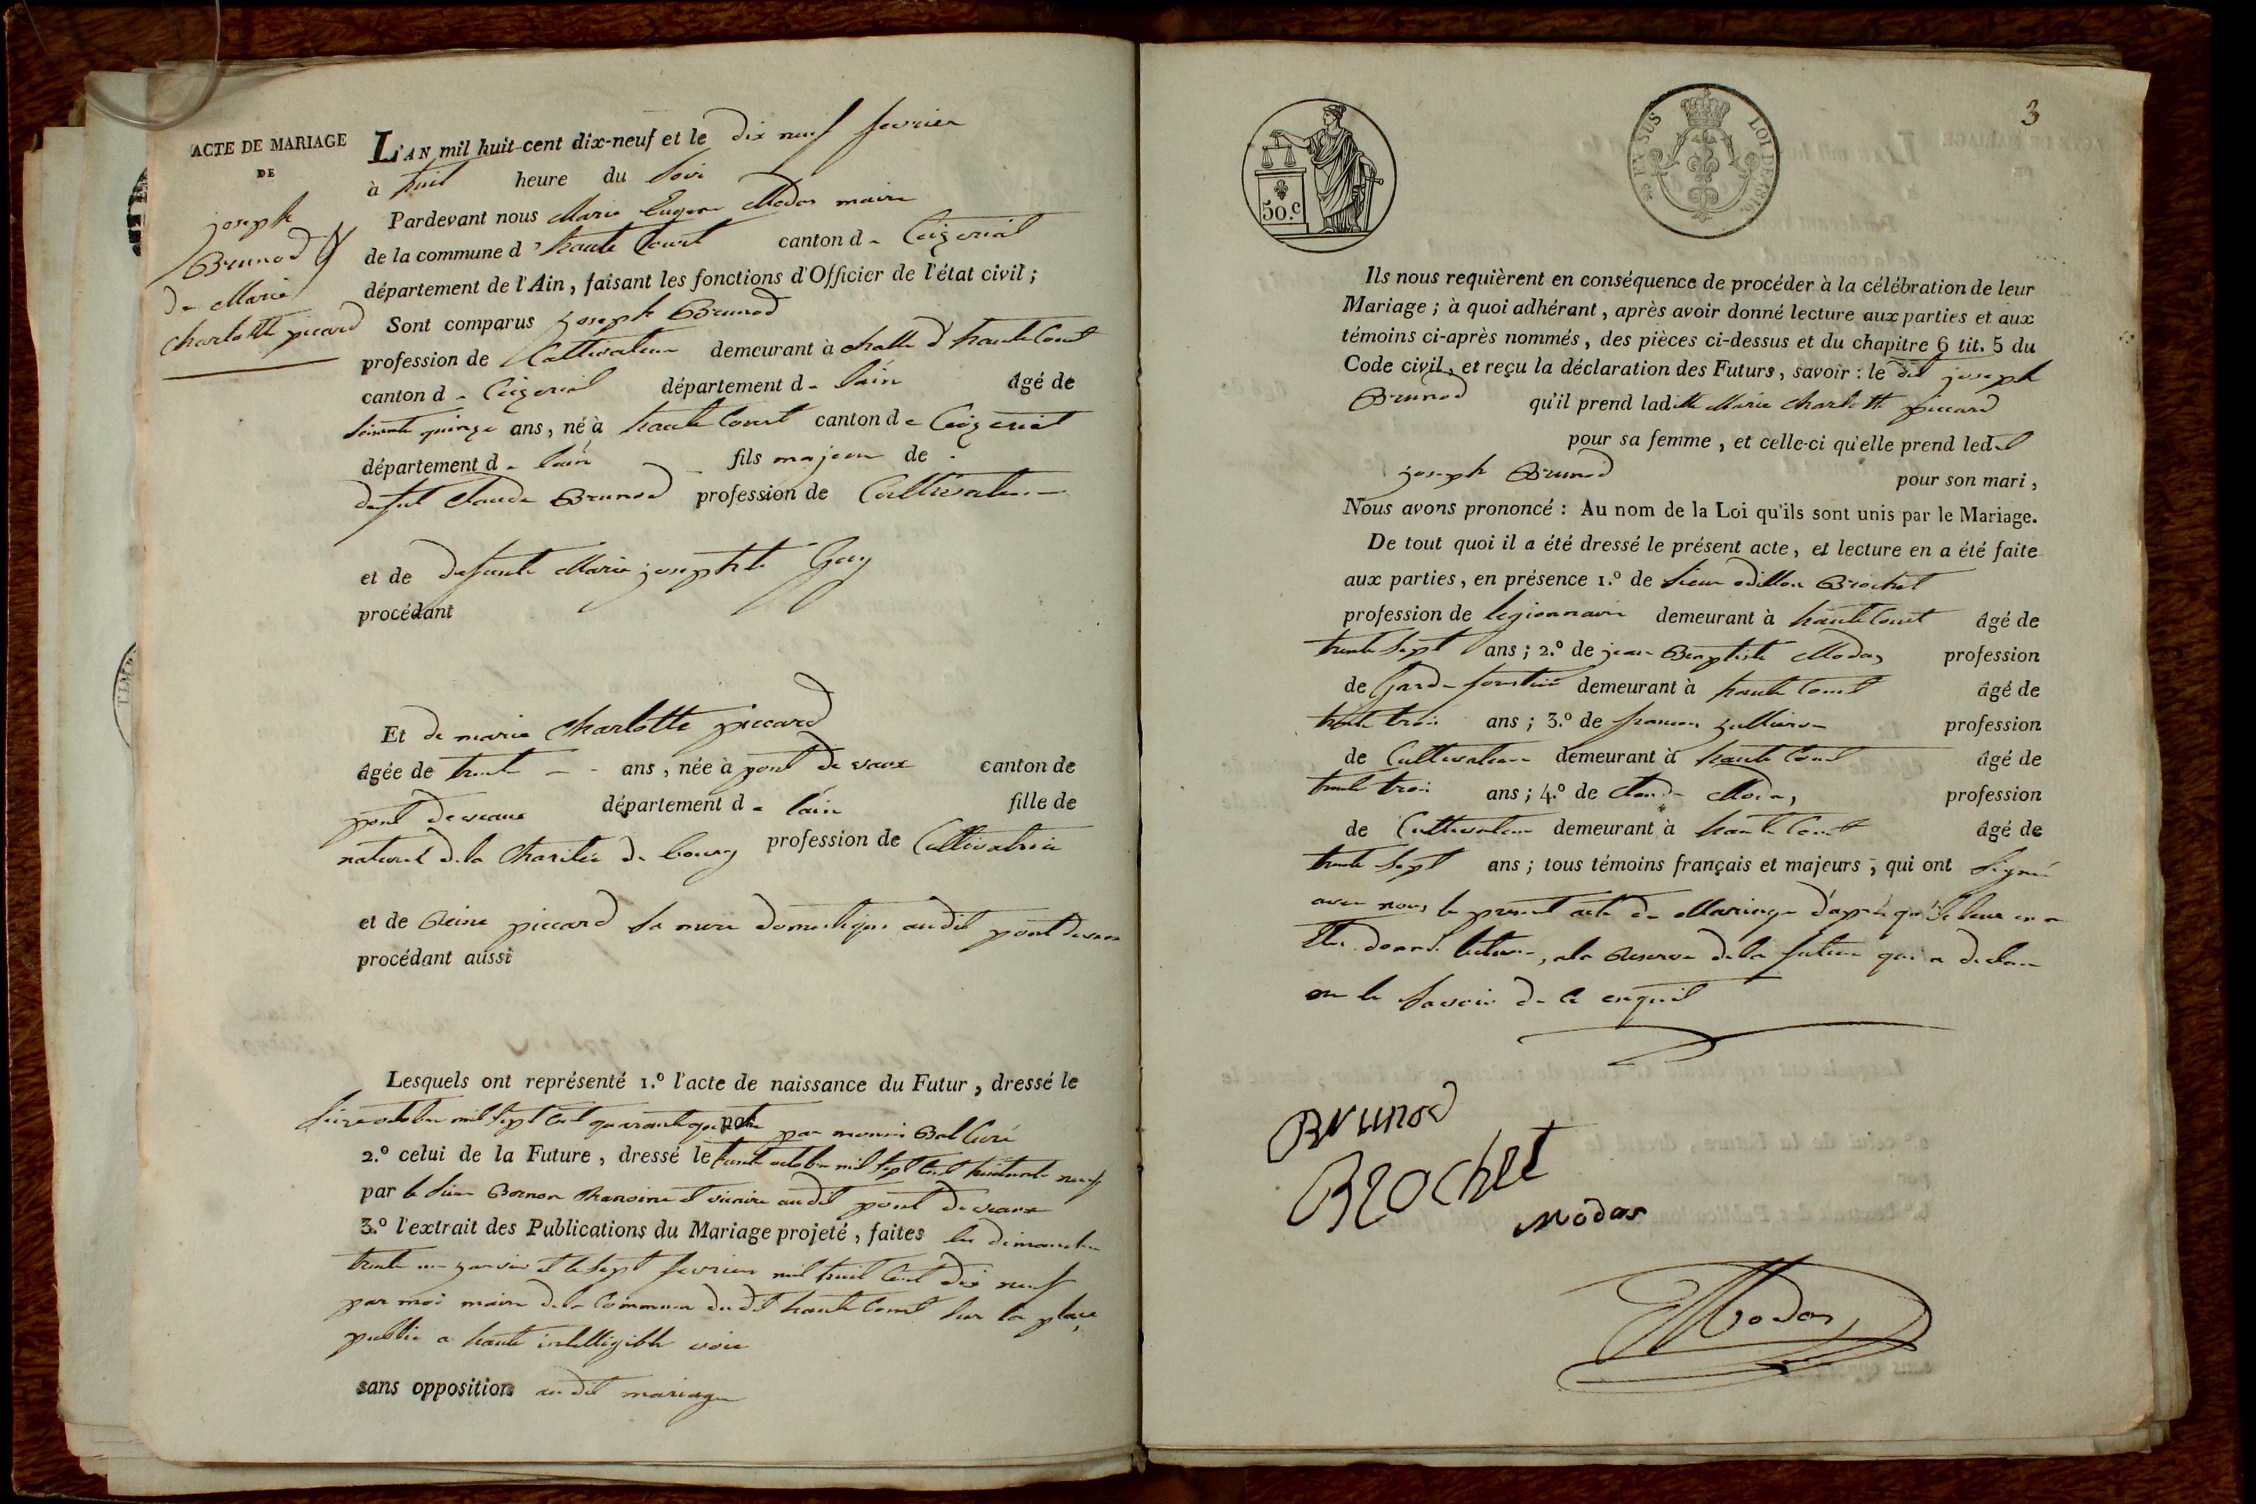 ACTE DE MARIAGE
DE
joseph
Brunod &
de Marie
charlotte piccard
L'AN mil huit cent dix-neuf et le dix neuf fevrier
à huit heure du soir
Pardevant nous Marie Eugene Modas maire
de la commune d'haute Court canton de Ceizeriat
département de l'Ain, faisant les fonctions d'Officier de l'état civil ;
Sont comparus joseph Brunod
profession de Cultivateur demeurant à challe d'haute Court
canton de Ceizeriat département de lain âgé de
soixante quinze ans, né à haute Court canton de Ceizeriat
département de lain fils majeur de
defut Claude Brunod profession de Cultivateur
et de defunte Marie josephte Guy
procédant
Et de marie Charlotte piccard
âgée de trente ans, née à pont de vaux canton de
pont de vaux département de lain fille de
naturel de la Charitée de bourg profession de Cultivatrice
et de Reine piccard sa mere domestique audit pont de vaux
procédant aussi
Lesquels ont représenté 1.º l'acte de naissance du Futur, dressé le
seize octobre mil sept cent quarante quatre par monsieur Bal Curé
2.º celui de la Future, dressé le trente octobre mil sept cent huitante neuf
par le sieur Bornon Chanoine et vicaire audit pont de vaux
3.º l'extrait des Publications du Mariage projeté, faites les dimanches
trente un janvier et le sept fevrier mil huit cent dix neuf
par moi maire de la Commune dudit haute Court sur la place
public a haute intelligible voix
sans opposition audit mariage
3
50.c
REX SUS
LOI DE 1816
Ils nous requièrent en conséquence de procéder à la célébration de leur
Mariage ; à quoi adhérant, après avoir donné lecture aux parties et aux
témoins ci-après nommés, des pièces ci-dessus et du chapitre 6 tit. 5 du
Code civil, et reçu la déclaration des Futurs, savoir : le dit joseph
Brunod qu'il prend laditte Marie charlotte piccard
pour sa femme, et celle-ci qu'elle prend ledit
joseph Brunod pour son mari,
Nous avons prononcé : Au nom de la Loi qu'ils sont unis par le Mariage.
De tout quoi il a été dressé le présent acte, et lecture en a été faite
aux parties, en présence 1.º de sieur odillon Brochet
profession de legionnaire demeurant à haute Court âgé de
trente sept ans ; 2.º de jean Baptiste Modas profession
de Garde forestier demeurant à haute Court âgé de
trente trois ans ; 3.º de francois jullieron profession
de Cultivateur demeurant à haute Court âgé de
trente trois ans ; 4.º de claude Modas profession
de Cultivateur demeurant à haute Court âgé de
trente sept ans ; tous témoins français et majeurs, qui ont signé
avec nous le present acte de Mariage d'apres qu'il leur en a
etee donné lecture, ala Reserve de la future qui a declare
ne le savoir de ce enquit
Brunod
Brochet
Modas
Modas